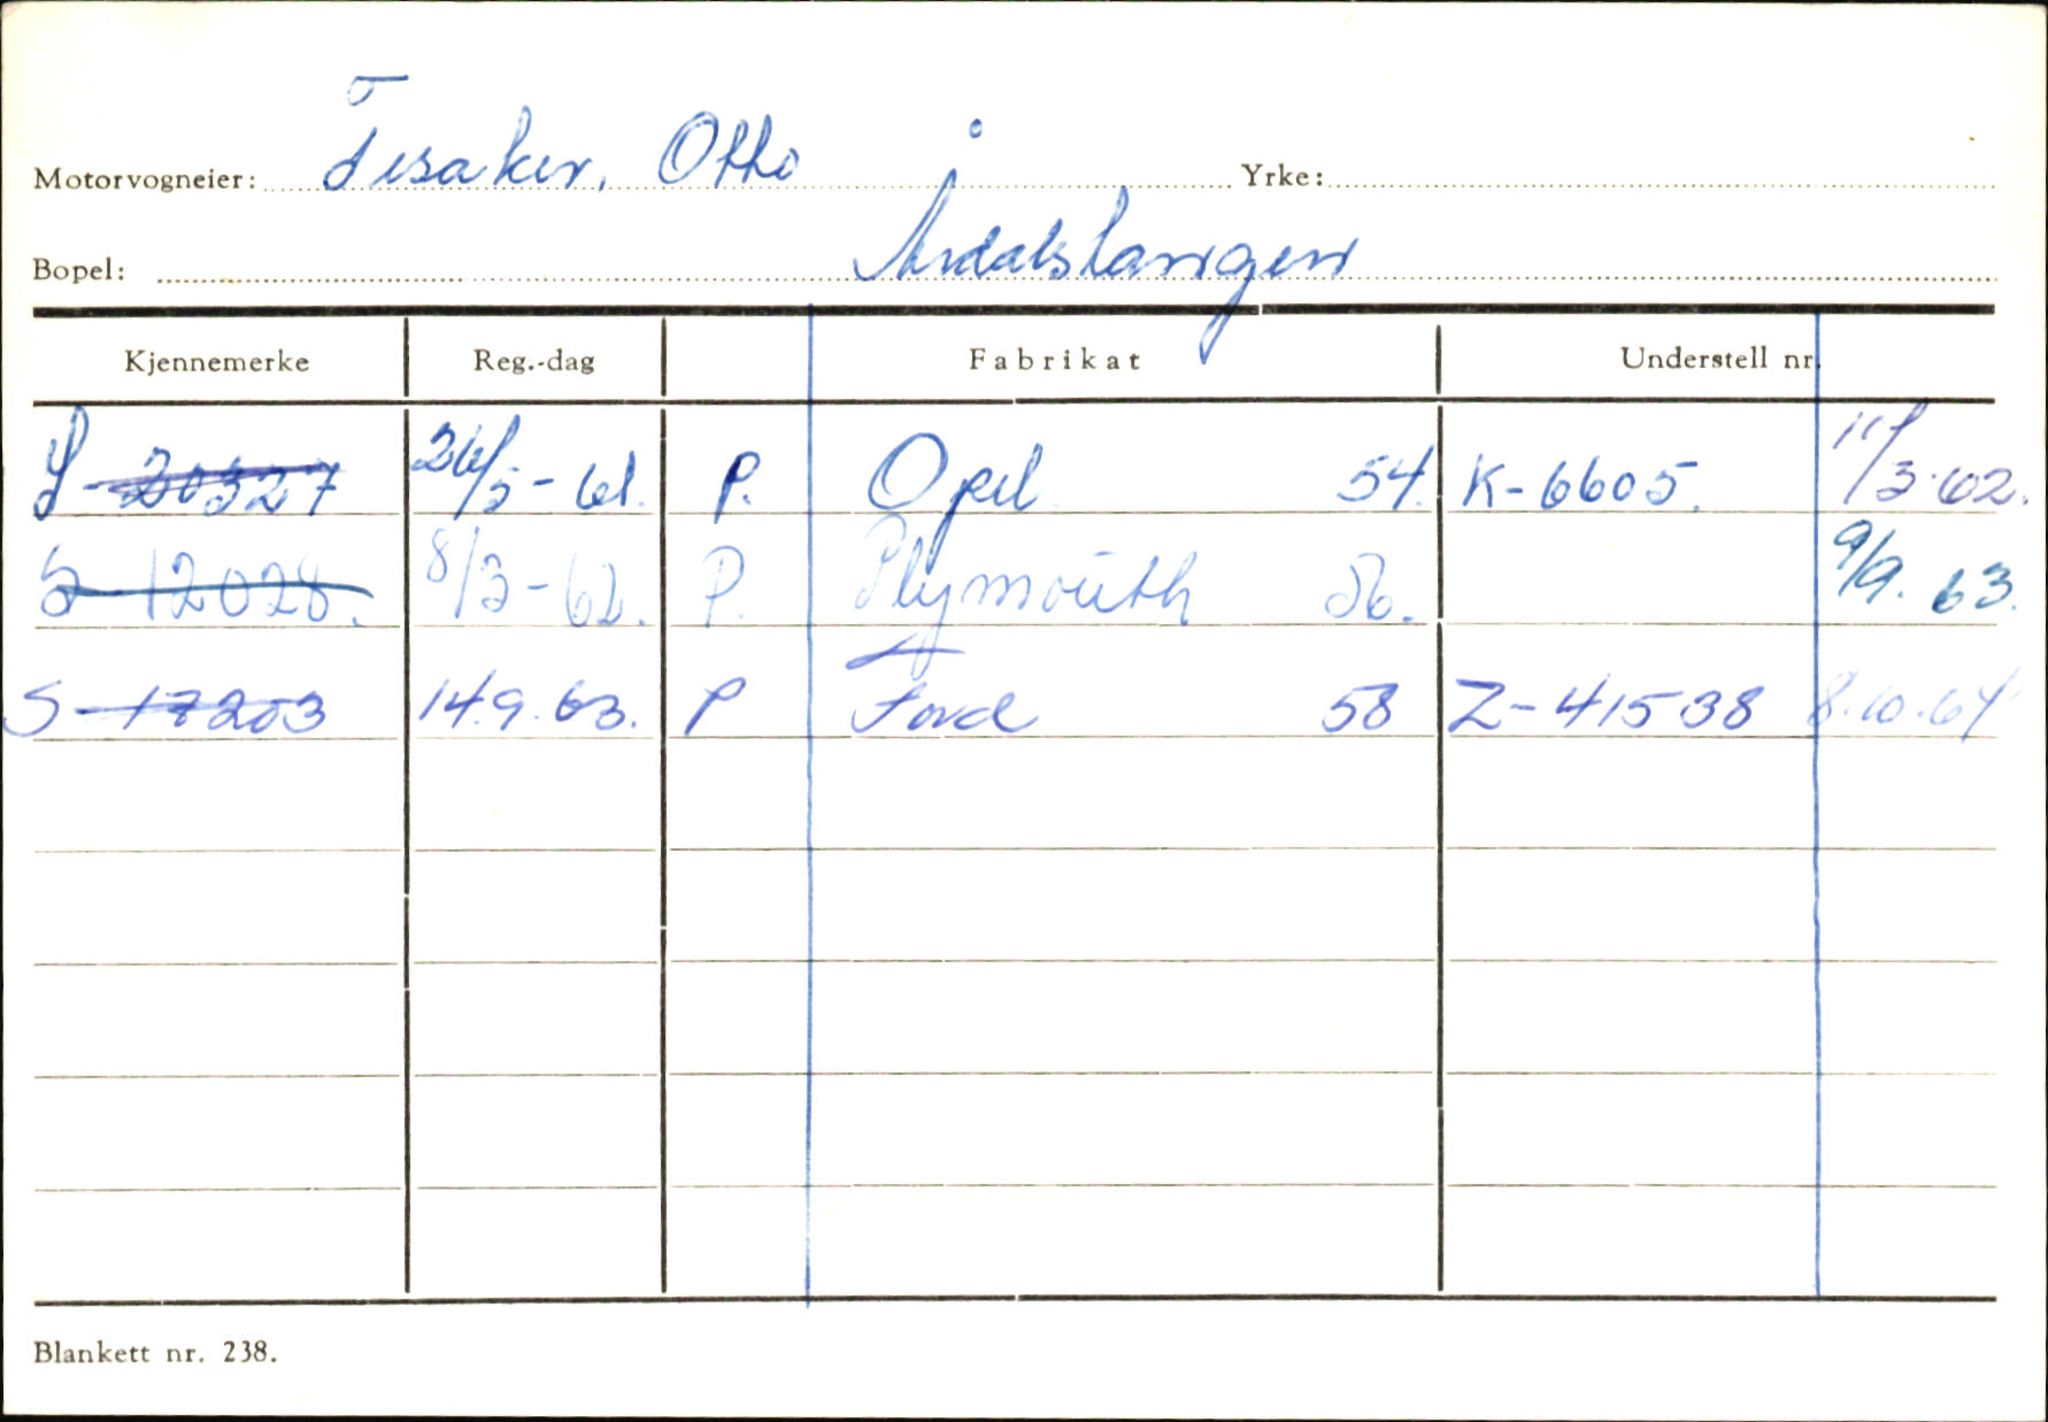 Motorvogneier: Fisaker, Otto Yrke:
Bopel: Årdalstangen
Kjennemerke Reg.-dag Fabrikat Understell nr.
S-20327 26/5-61. P. Opel 54. K-6605. 11/3-62.
S-12028. 8/3-62. P. Plymouth 56. 9/9.63.
S-17203 14.9.63. P Ford 58 Z-41538 8.10.64
Blankett nr. 238.